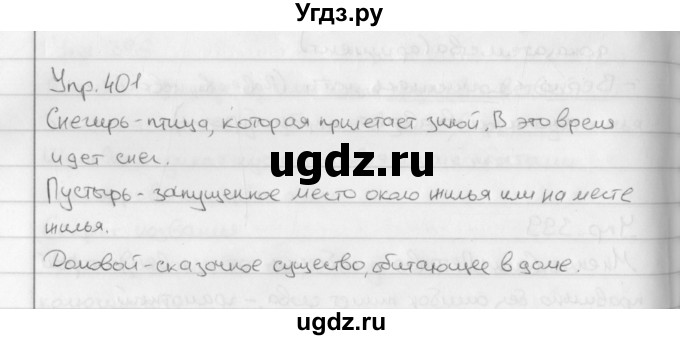 Угдз.ру
Упр. 401
Снегирь - птица, которая прилетает зимой. В это время
идет снег.
Пустырь - запущенное место около жилья или на месте
жилья.
Домовой - сказочное существо, обитающее в доме.
ugdz.ru
ugdz.ru